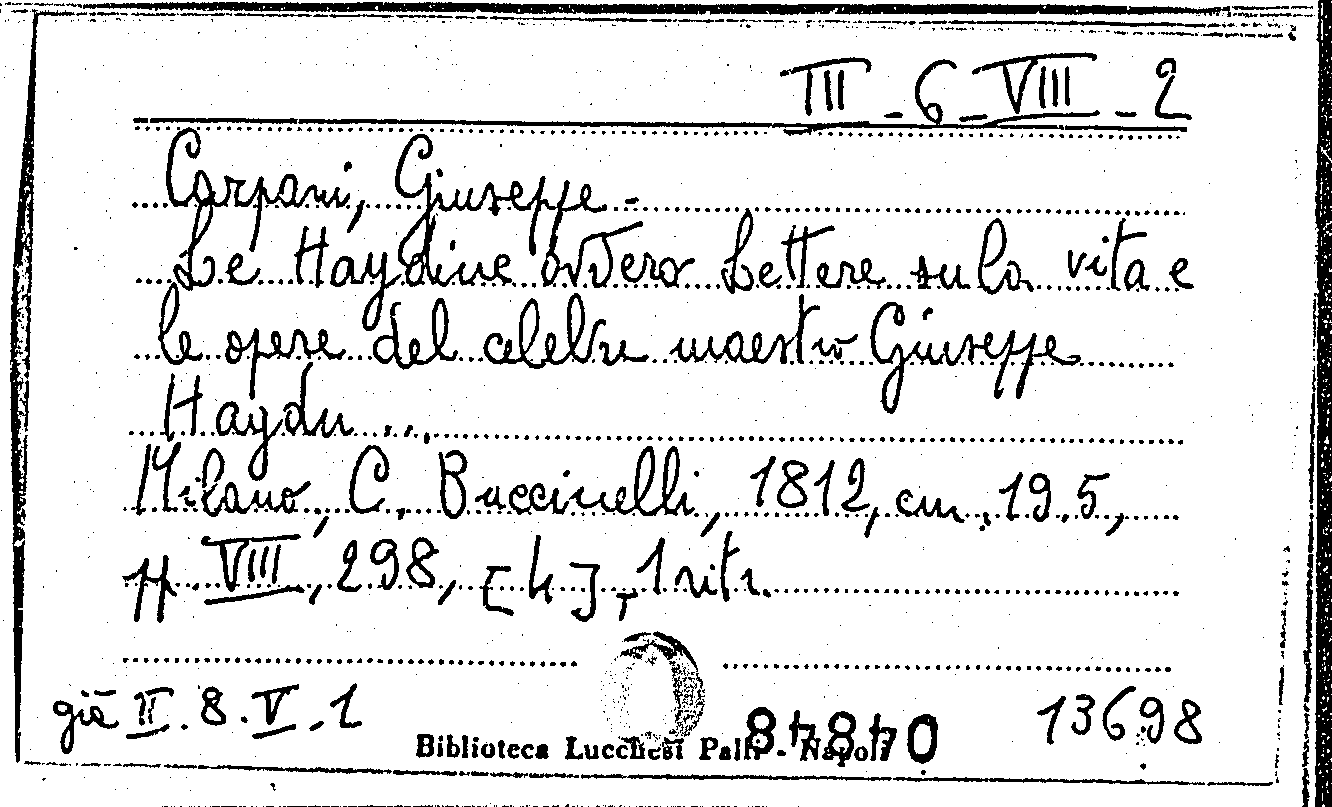 III - 6 - VIII - 2
Carpani, Giuseppe -
Le Haydine ovvero Lettere sula vita e
le opere del celebre maestro Giuseppe
Haydn ...
Milano, C. Buccinelli, 1812, cm. 19.5,
pp. VIII, 298, [4], 1 ritr.
già II. 8. V. 1
Biblioteca Lucchesi Palli - Napoli
04848
13698